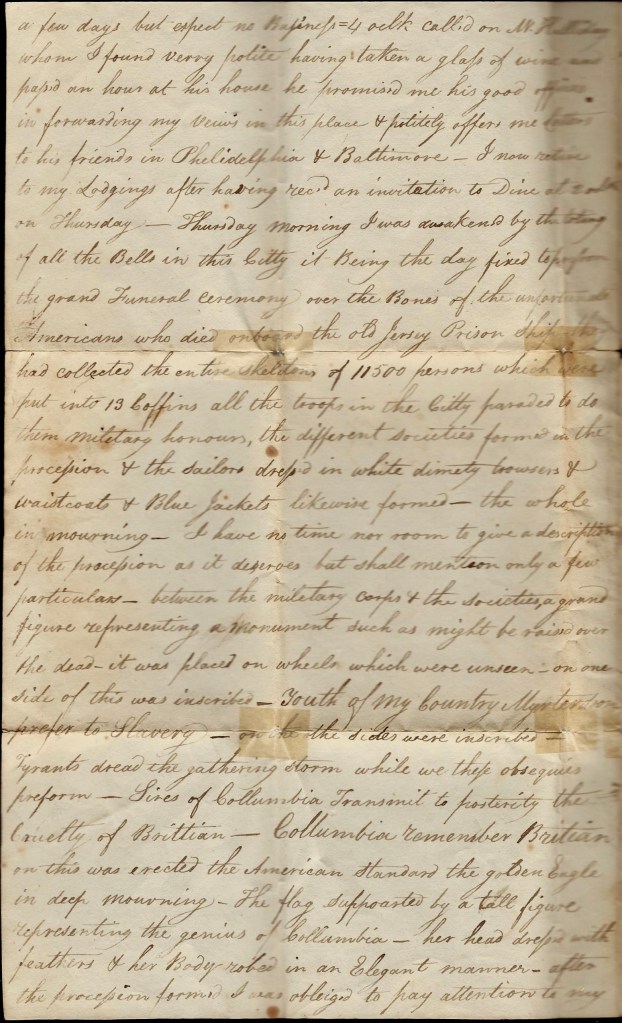 a few days but expect no Business = 4 oclk called on Mr. Halliday
whom I found verry polite having taken a glass of wine and
passd an hour at his house he promised me his good offices
in forwarding my veiws in this place & politely offers me letters
to his friends in Pheledelphia & Baltimore — I now retire
to my Lodgings after having recd an invitation to Dine at 2 oclk
on Thursday — Thursday morning I was awakend by the toleing
of all the Bells in this Citty it Being the day fixed to preform
the grand Funeral ceremony over the Bones of the unfortunate
Americans who died onboard the old Jersey Prison Ship
had collected the entire skeletons of 11500 persons which were
put into 13 Coffins all the troops in the Citty paraded to do
them military honours, the different societies formed in the
procession & the sailors dressd in white dimety trowsers &
waistcoats & Blue Jackets likewise formed — the whole
in mourning — I have no time nor room to give a description
of the procession as it deserves but shall mention only a few
particulars — between the military corps & the societies, a grand
figure representing a monument such as might be raised over
the dead — it was placed on wheels which were unseen — on one
side of this was inscribed — Youth of my Country Myrterdom
prefer to Slavery — on the othe sides were inscribed —
Tyrants dread the gathering storm while we these obsequies
preform — Sires of Collumbia Transmit to posterity the
Cruelty of Brittian — Collumbia remember Britian
on this was erected the American Standard the golden Eagle
in deep mourning — The flag suppoarted by a tall figure
representing the genius of Collumbia — her head dressd with
feathers & her Body robed in an Elegant manner — after
the procession formed I was obleiged to pay attention to my